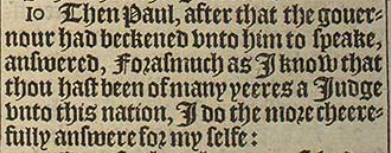 10 Then Paul, after that the gouer-
nour had beckened vnto him to speake,
answered, Forasmuch as I know that
thou hast been of many yeeres a Judge
vnto this nation, I do the more cheere-
fully answere for my selfe: